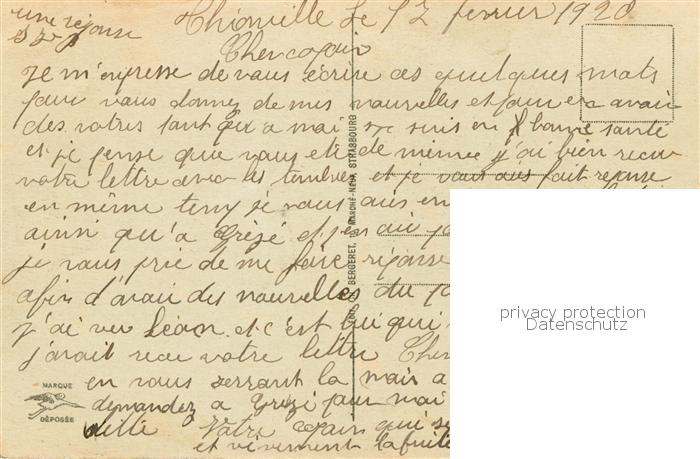 une réponse
S v p
Thionville Le 12 fevrier 1920
Cher copain
Je m'enpresse de vous écrire ces quelques mots
pour vous donnez de mes nouvelles et pour en avoir
des votres tant qu'a moi je suis en bonne santé
et je pense que vous ete de même j'ai bien recu
votre lettre avec les timbres et je vous ais fait reponse
en même temp je vous ais en
ainsi qu'a Grézé et j'en ai
je vous prie de me faire réponse
afin d'avoir des nouvelles du
j'ai vu Léon et c'est lui qui
j'avait recu votre lettre Cher
en vous serrant la main a
demandez a Grezé pour moi
Votre copain qui
et vivement la fuite
MARQUE
DÉPOSÉE
BERGERET, MARCHÉ-NEUF, STRASBOURG
privacy protection
Datenschutz